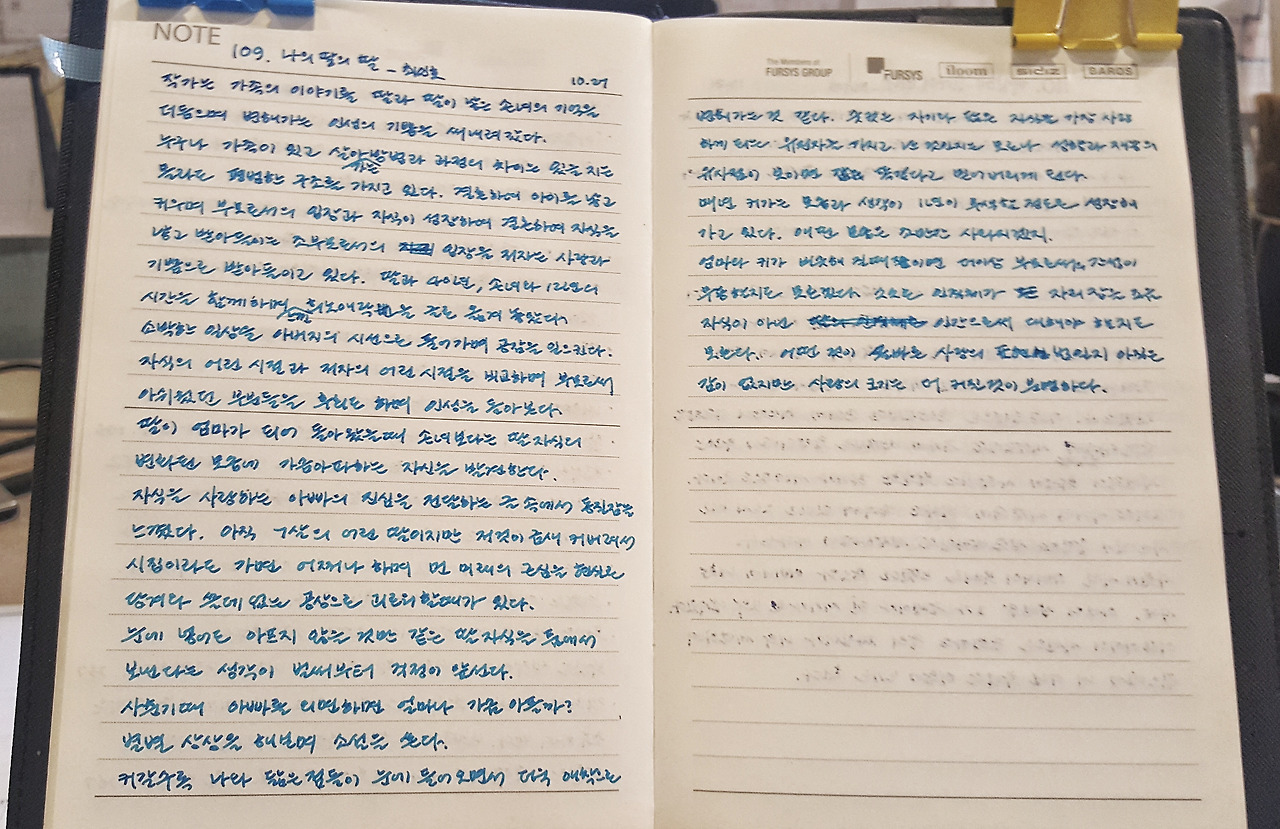 NOTE
109. 나의 딸의 딸 - 최인호
10.27
작가는 가족의 이야기를 딸과 딸이 낳은 손녀의 기억을
더듬으며 변해가는 인생의 기쁨을 써내려갔다.
누구나 가족이 있고 살아가는 방법과 과정의 차이는 있을지는
몰라도 평범한 구조를 가지고 있다. 결혼하여 아이를 낳고
키우며 부모로서의 입장과 자식이 성장하여 결혼하며 자식을
낳고 받아들이는 조부모로서의 입장을 저자는 사랑과
기쁨으로 받아들이고 있다. 딸과 40년, 손녀와 12년의
시간을 함께하며 희노애락을 글로 옮겨 놓았다.
소박한 일상을 아버지의 시선으로 들어가며 공감을 일으킨다.
자식의 어린 시절과 저자의 어린 시절을 비교하며 부모로써
아쉬웠던 부분들을 후회도 하며 인생을 돌아본다.
딸이 엄마가 되어 돌아왔을때 손녀보다는 딸자식의
변화된 모습에 가슴아파하는 자신을 발견한다.
자식을 사랑하는 아빠의 진심을 전달하는 글 속에서 동질감을
느꼈다. 아직 7살의 어린 딸이지만 저것이 금새 커버려서
시집이라도 가면 어쩌나 하며 먼 미래의 근심을 현실로
당겨와 쓸데없는 공상으로 괴로워할때가 있다.
눈에 넣어도 아프지 않을 것만 같은 딸자식을 품에서
보낸다는 생각이 벌써부터 걱정이 앞선다.
사춘기때 아빠를 외면하면 얼마나 가슴 아플까?
별별 상상을 해보며 소설을 쓴다.
커갈수록 나와 닮은점들이 눈에 들어오면서 더욱 애착으로
The Members of
FURSYS GROUP
FURSYS
iloom
sidiz
BAROS
변해가는 것 같다. 못났은 자이나 닮은 자식을 가장 사랑
하게 되는 유전자를 가지고 난 것인지는 모르나 성향과 재능의
유사점이 보이면 똑같다고 믿어버리게 된다.
매년 커가는 모습과 생각이 1년이 무색할 정도로 성장해
가고 있다. 애띤 모습은 조만간 사라지겠지.
엄마와 키가 비슷해 질때이면 더이상 부모로써 간섭이
무용할지도 모르겠다. 스스로 인격체가 자리 잡는 모습
자식이 아닌 인간으로써 대해야 할지도
모른다. 어떤 것이 올바른 사랑의 방법인지 아직은
감이 없지만 사랑의 크기는 더 커진것이 분명하다.